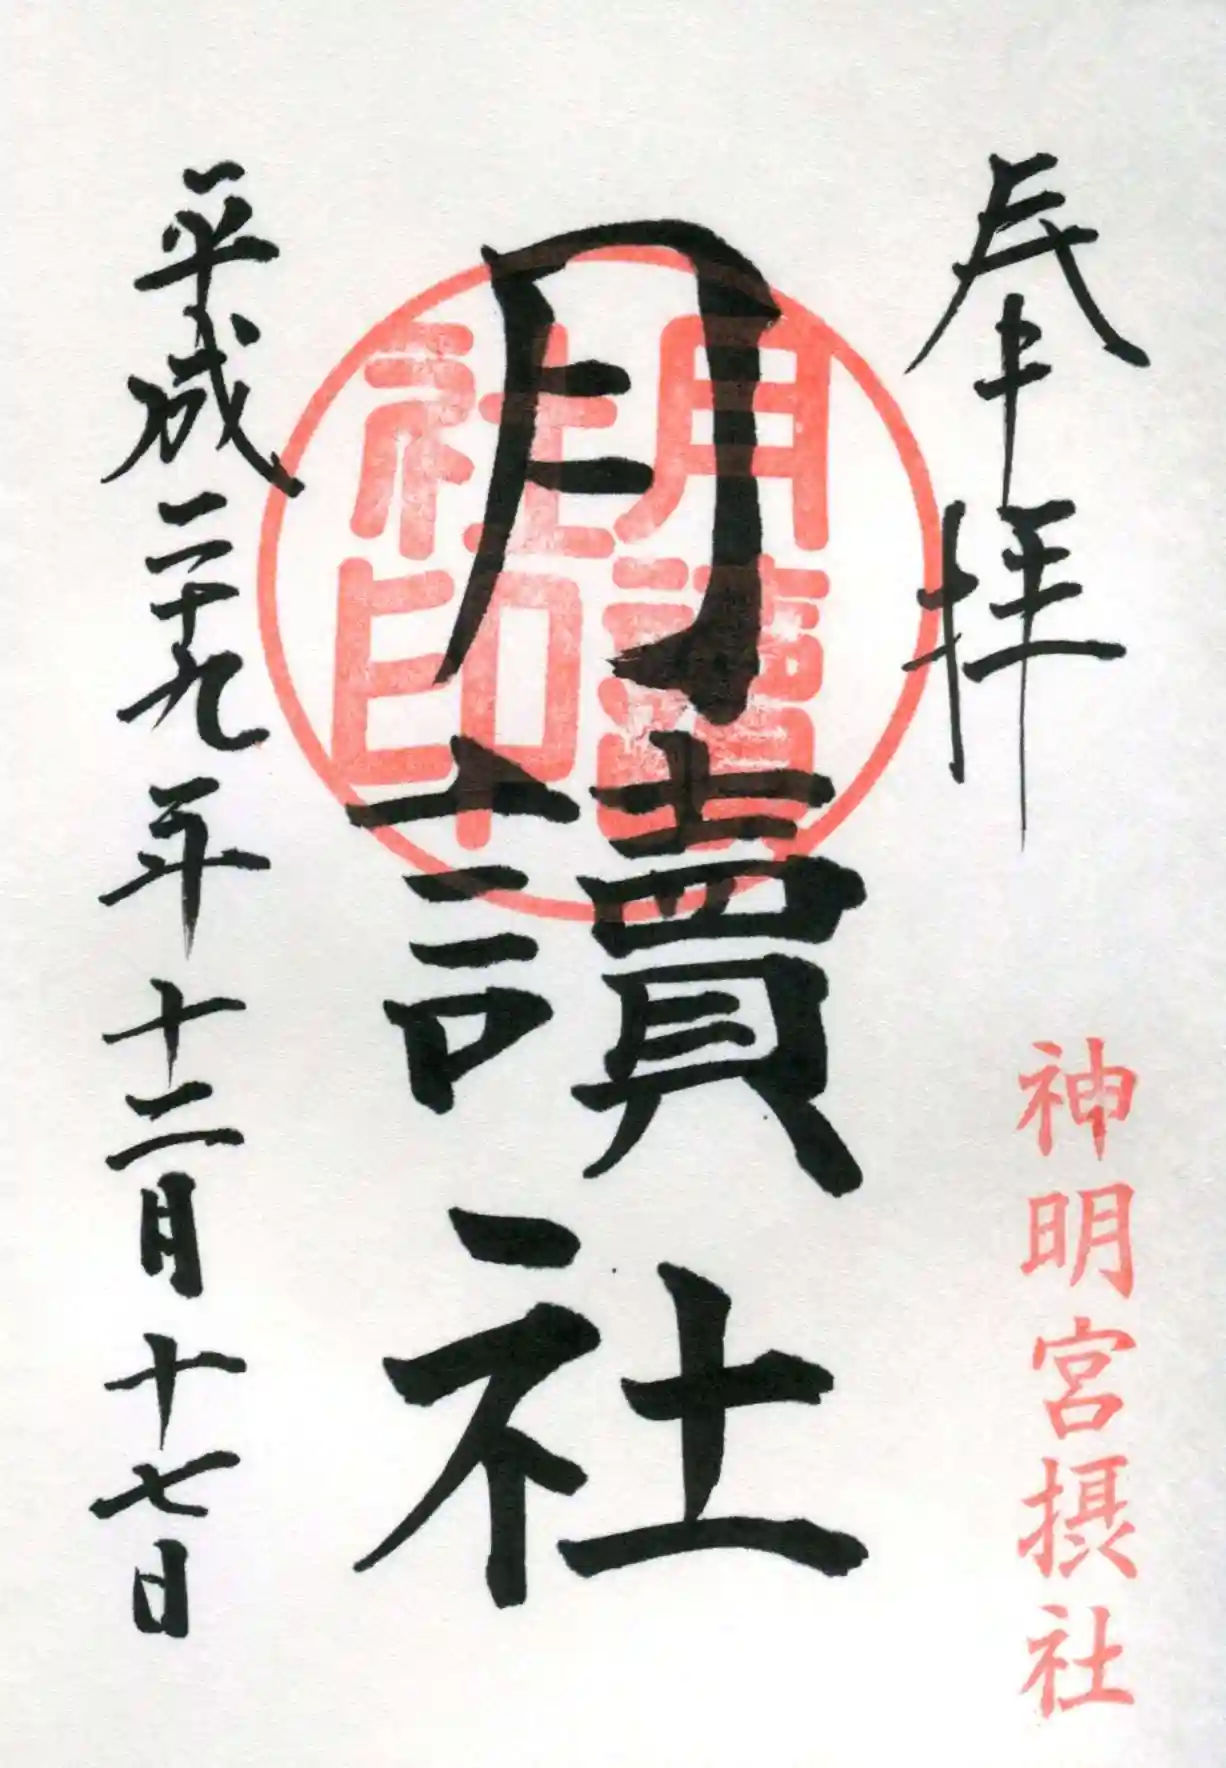 奉拝
神明宮摂社
月讀社
月讀
社印
平成二十九年十二月十七日